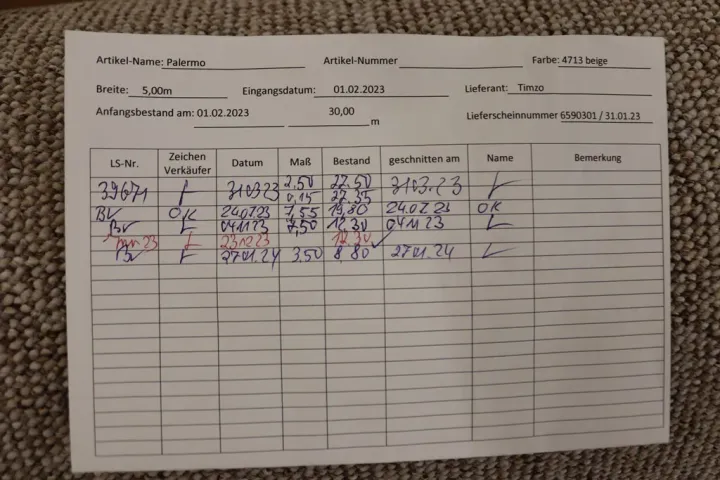 Artikel-Name: Palermo Artikel-Nummer Farbe: 4713 beige
Breite: 5,00m Eingangsdatum: 01.02.2023 Lieferant: Timzo
Anfangsbestand am: 01.02.2023 30,00 m Lieferscheinnummer 6590301 / 31.01.23
LS-Nr. Zeichen Verkäufer Datum Maß Bestand geschnitten am Name Bemerkung
39671 310323 2,50 27,50 3103.23
0,15 27,35
BV OK 240723 7,55 19,80 24.07.23 OK
BV L 041123 7,50 12,30 041123 L
231223 12,30
BV 2701.24 3,50 8,80 2701.24 L